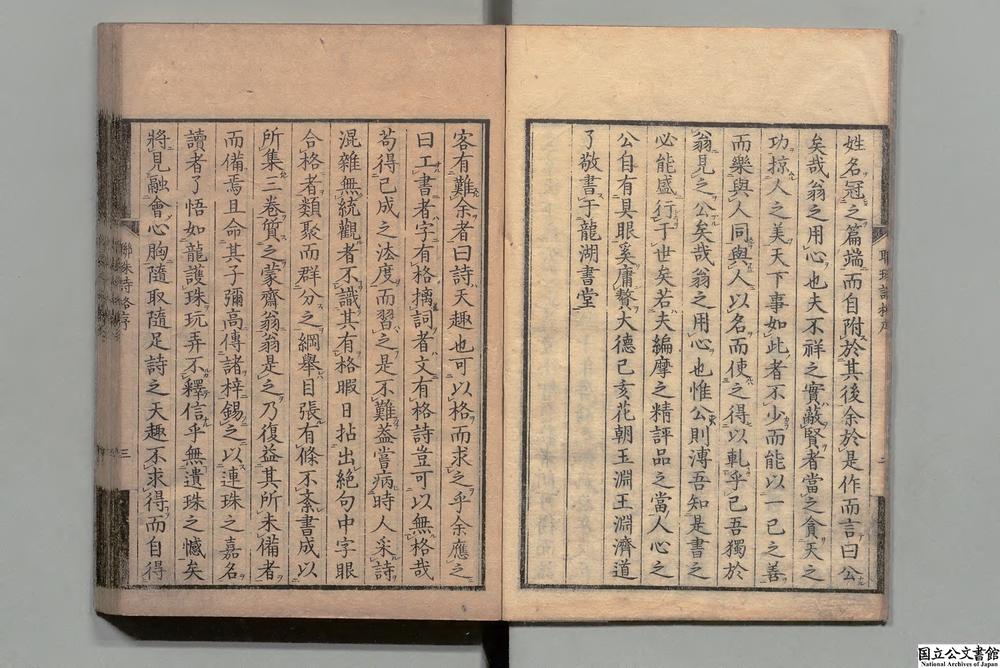 姓名冠之篇端而自附於其後余於是作而言曰公
矣哉翁之用心也夫不祥之實蔽賢者當之貪天之
功掠人之美天下事如此者不少而能以一己之善
而樂與人同與人以名而使之得以軋乎己吾獨於
翁見之公矣哉翁之用心也惟公則溥吾知是書之
必能感行于世矣若夫編摩之精評品之當人心之
公自有具眼奚庸贅大德己亥花朝玉淵王淵濟道
了敬書于龍湖書堂
客有難余者曰詩天趣也可以格而求之乎余應之
曰工書者字有格摛詞者文有格詩豈可以無格哉
苟得已成之法度而習之是不難益嘗病時人采詩
混雜無統觀者不識其有格暇日拈出絶句中字眼
合格者類聚而群分之綱舉目張有條不紊書成以
所集三卷質之蒙齋翁翁是之乃復益其所未備者
而備焉且命其子彌高傳諸梓錫之以連珠之嘉名
讀者了悟如龍護珠玩弄不釋信乎無遺珠之憾矣
將見融會心胸隨取隨足詩之天趣不求得而自得
聯珠詩格序
三
国立公文書館
National Archives of Japan